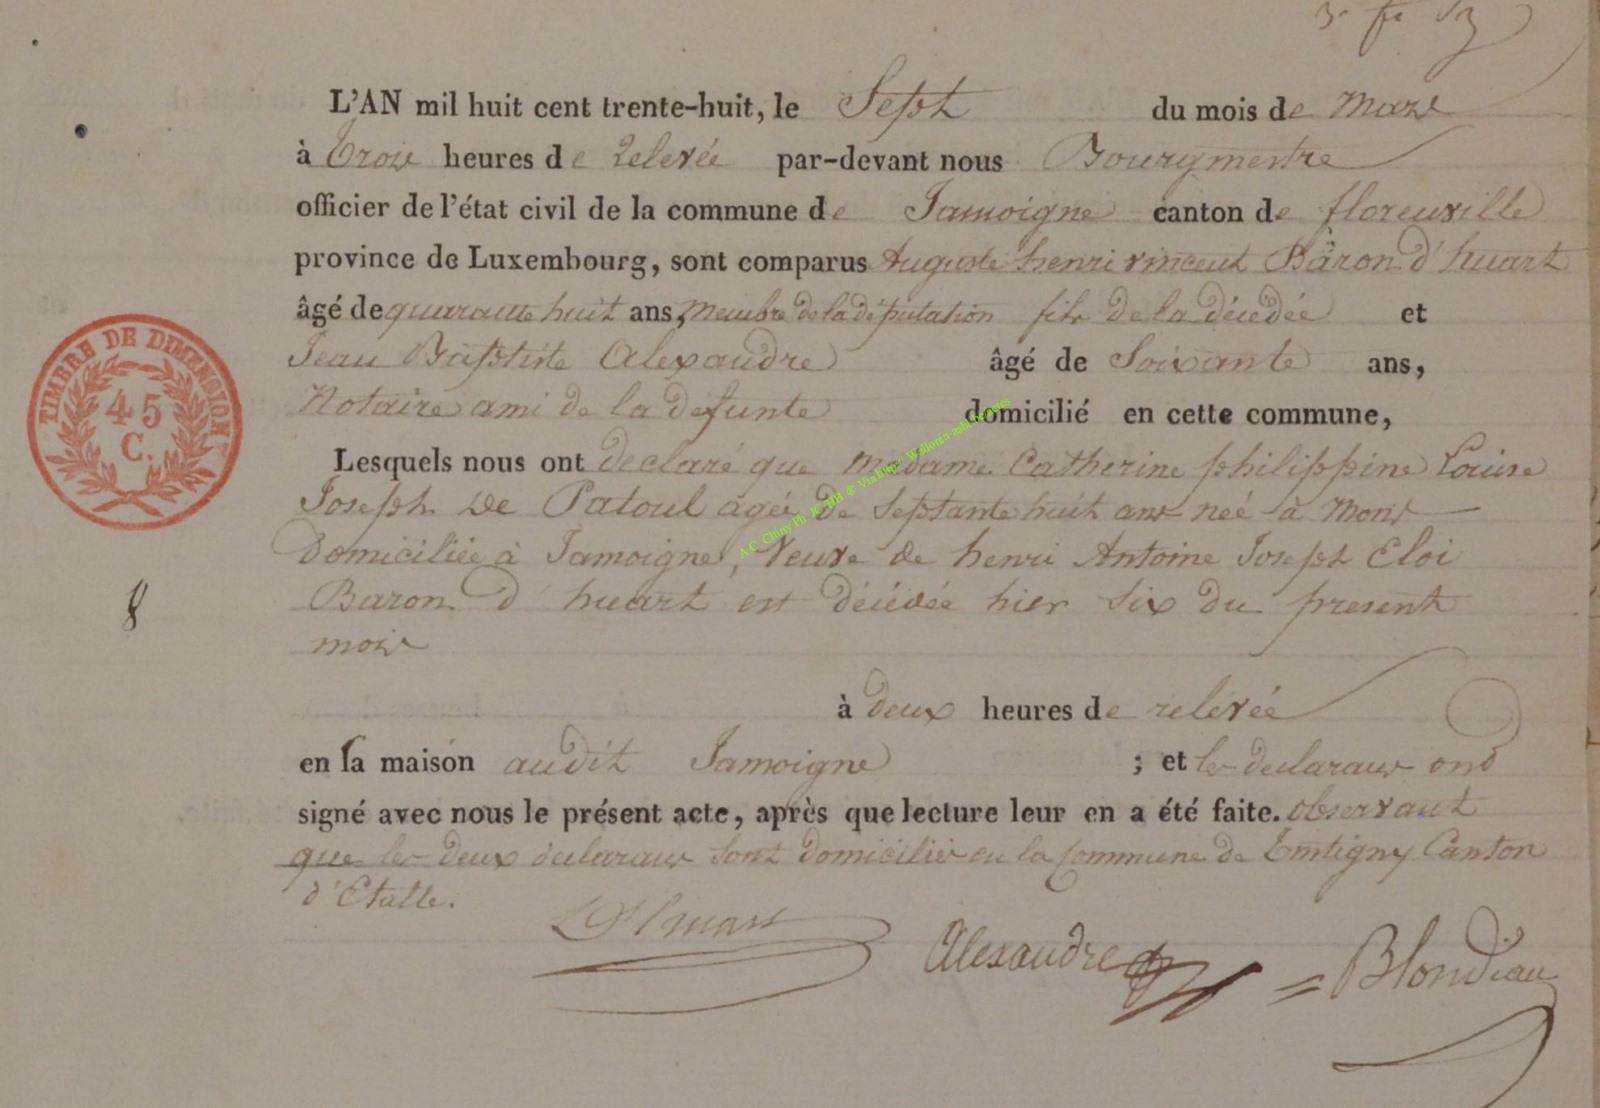 L'AN mil huit cent trente-huit, le Sept du mois de Mars
à Trois heures de relevée par-devant nous Bourgmestre
officier de l'état civil de la commune de Jamoigne canton de florenville
province de Luxembourg, sont comparus Auguste henri vincent Baron d'huart
âgé de quarante huit ans, Membre de la députation fils de la décédée et
Jean Baptiste Alexandre âgé de Soixante ans,
Notaire ami de la defunte domicilié en cette commune,
Lesquels nous ont declaré que Madame Catherine philippine Louise
Joseph De Patoul agée de septante huit ans neé à Mons
Domiciliée à Jamoigne, Veuve de henri Antoine Joseph Eloi
Baron d'huart est décédée hier six du present
mois
à deux heures de relevée
en sa maison audit Jamoigne ; et les declarans ont
signé avec nous le présent acte, après que lecture leur en a été faite. observant
que les deux declarans sont domiciliés en la Commune de Tintigny Canton
d'Etalle.
d'huart Alexandre Blondiau
TIMBRE DE DIMENSION
45
C.
8